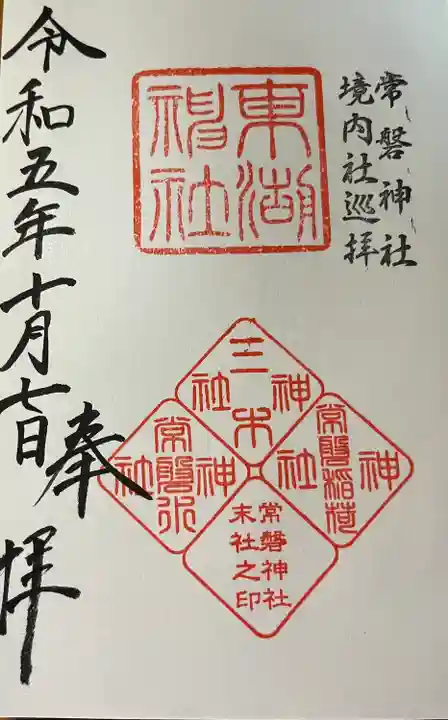 常磐神社
境内社巡拝
東湖神社
三木神社
常磐稲荷神社
常磐水神社
常磐神社
末社之印
奉拝
令和五年十月七日